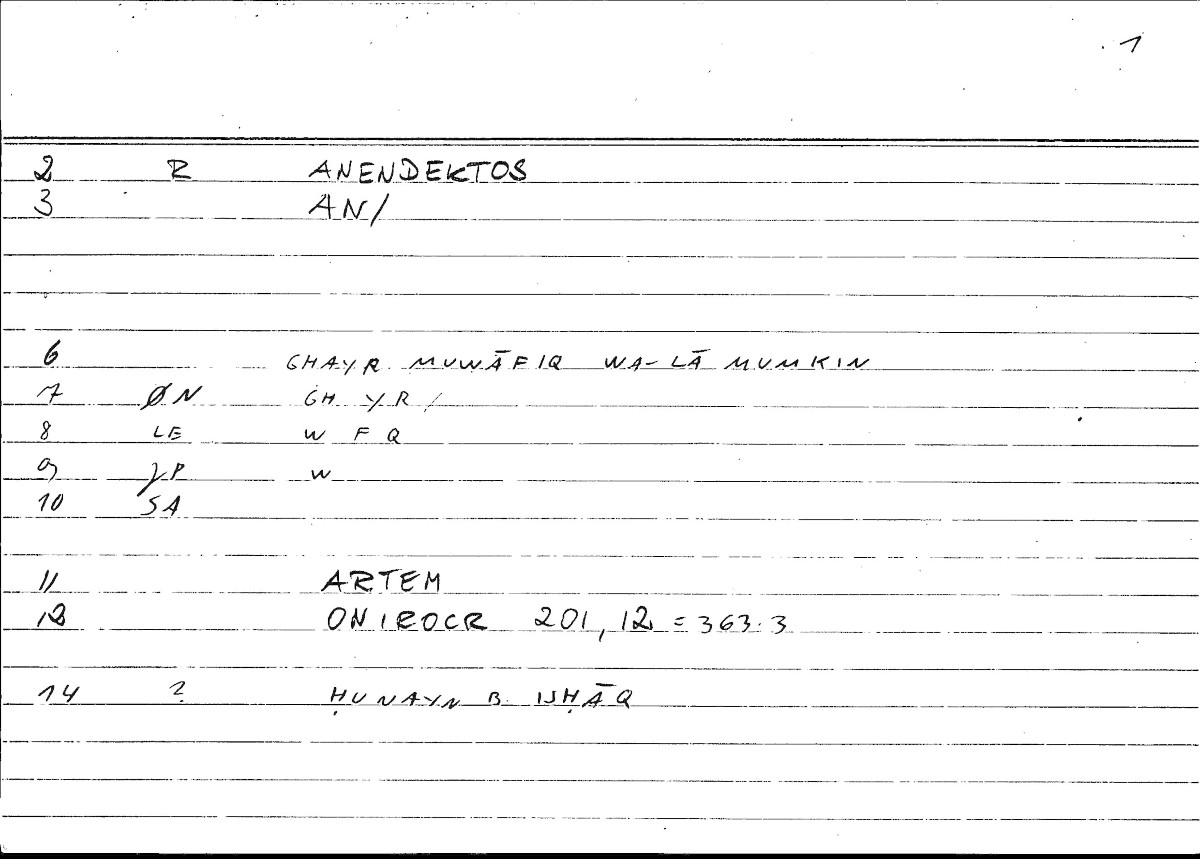 1
2 R ANENDEKTOS
3 AN/
6 GHAYR MUWĀFIQ WA-LĀ MUMKIN
7 ØN GH YR /
8 LE W F Q
9 W
10 SA
11 ARTEM
12 ONIROCR 201,12 = 363.3
14 ? ḤUNAYN B. ISḤĀQ